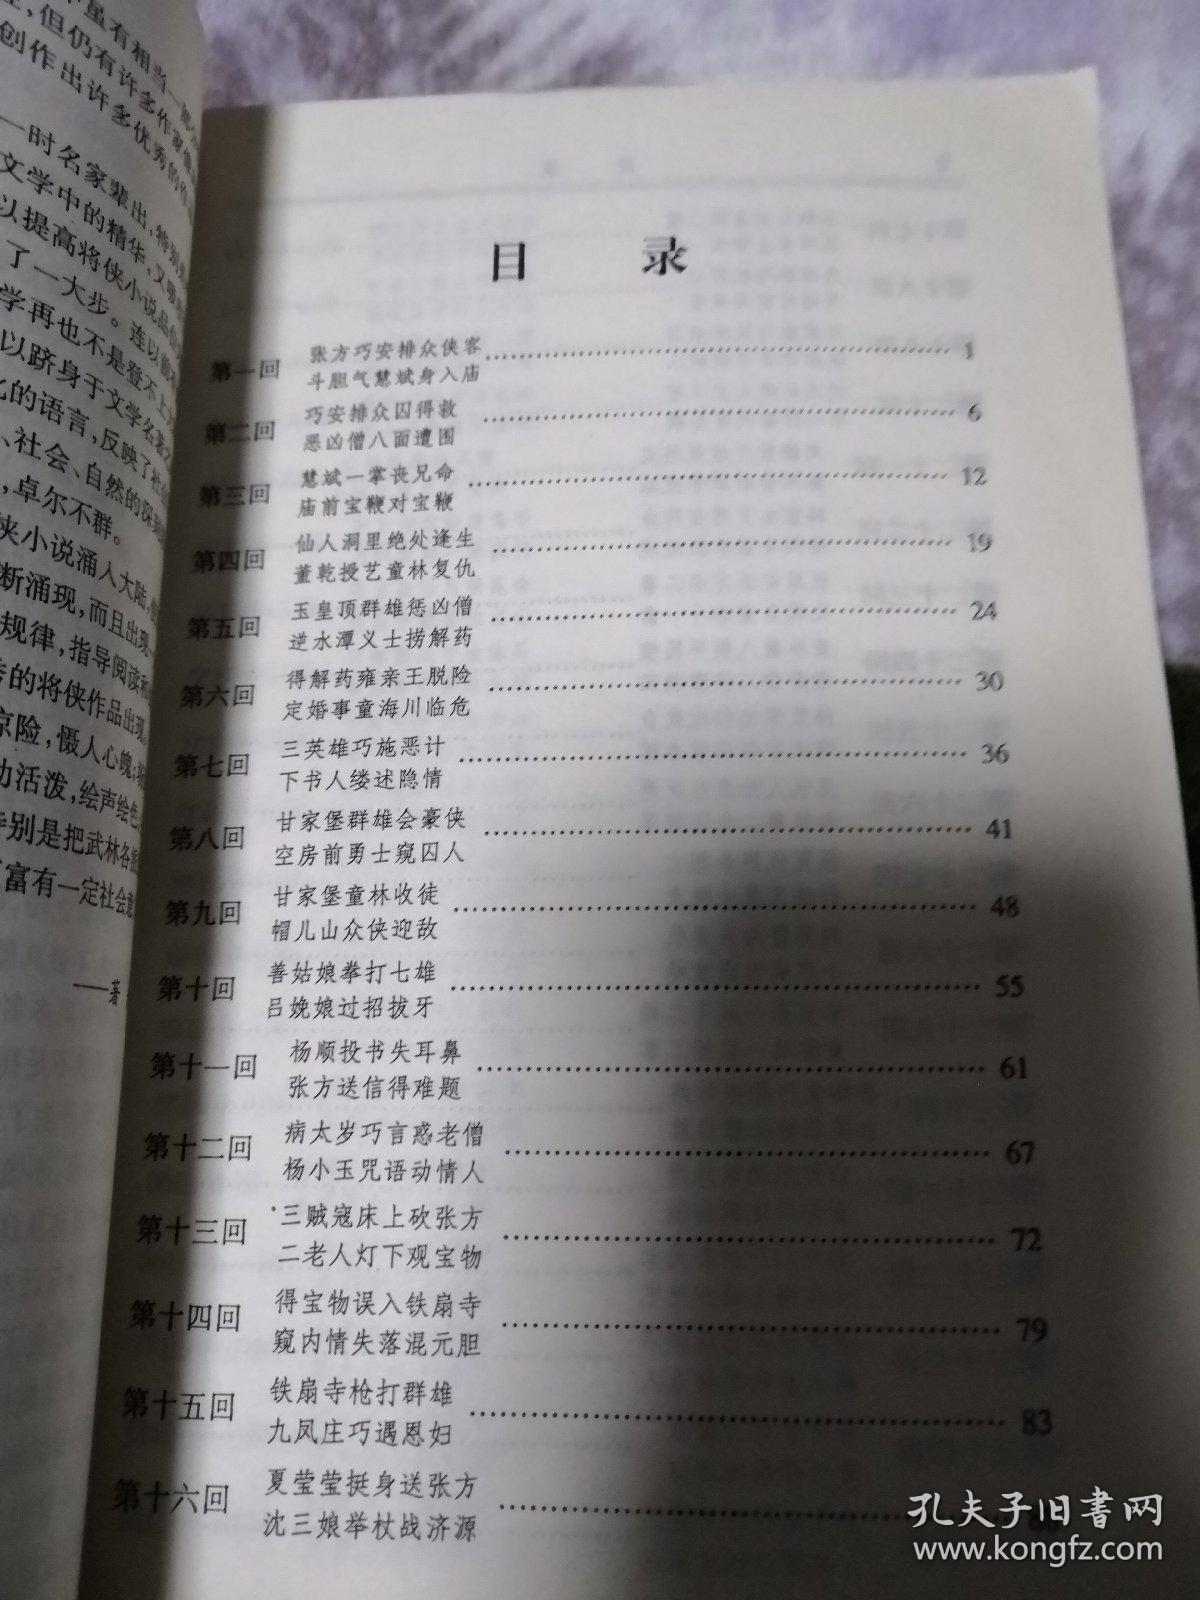 虽有相当一部分
但仍有许多作家
创作出许多优秀的作
一时名家辈出,特别是
文学中的精华,又
以提高将侠小说品位
了一大步。连以前不
学再也不是登不上大
以跻身于文学名著之
化的语言,反映了社会
、社会、自然的探
,卓尔不群。
侠小说涌入大陆,
断涌现,而且出现
规律,指导阅读和
传的将侠作品出现
惊险,慑人心魄;
动活泼,绘声绘色
特别是把武林各
富有一定社会意
——著
目 录
第一回 张方巧安排众侠客
斗胆气慧斌身入庙 1
第二回 巧安排众囚得救
恶凶僧八面遭围 6
第三回 慧斌一掌丧兄命
庙前宝鞭对宝鞭 12
第四回 仙人洞里绝处逢生
董乾授艺童林复仇 19
第五回 玉皇顶群雄惩凶僧
逆水潭义士捞解药 24
第六回 得解药雍亲王脱险
定婚事童海川临危 30
第七回 三英雄巧施恶计
下书人缕述隐情 36
第八回 甘家堡群雄会豪侠
空房前勇士窥囚人 41
第九回 甘家堡童林收徒
帽儿山众侠迎敌 48
第十回 善姑娘拳打七雄
吕娩娘过招拔牙 55
第十一回 杨顺投书失耳鼻
张方送信得难题 61
第十二回 病太岁巧言惑老僧
杨小玉咒语动情人 67
第十三回 三贼寇床上砍张方
二老人灯下观宝物 72
第十四回 得宝物误入铁扇寺
窥内情失落混元胆 79
第十五回 铁扇寺枪打群雄
九凤庄巧遇恩妇 83
第十六回 夏莹莹挺身送张方
沈三娘举杖战济源
孔夫子旧书网
www.kongfz.com